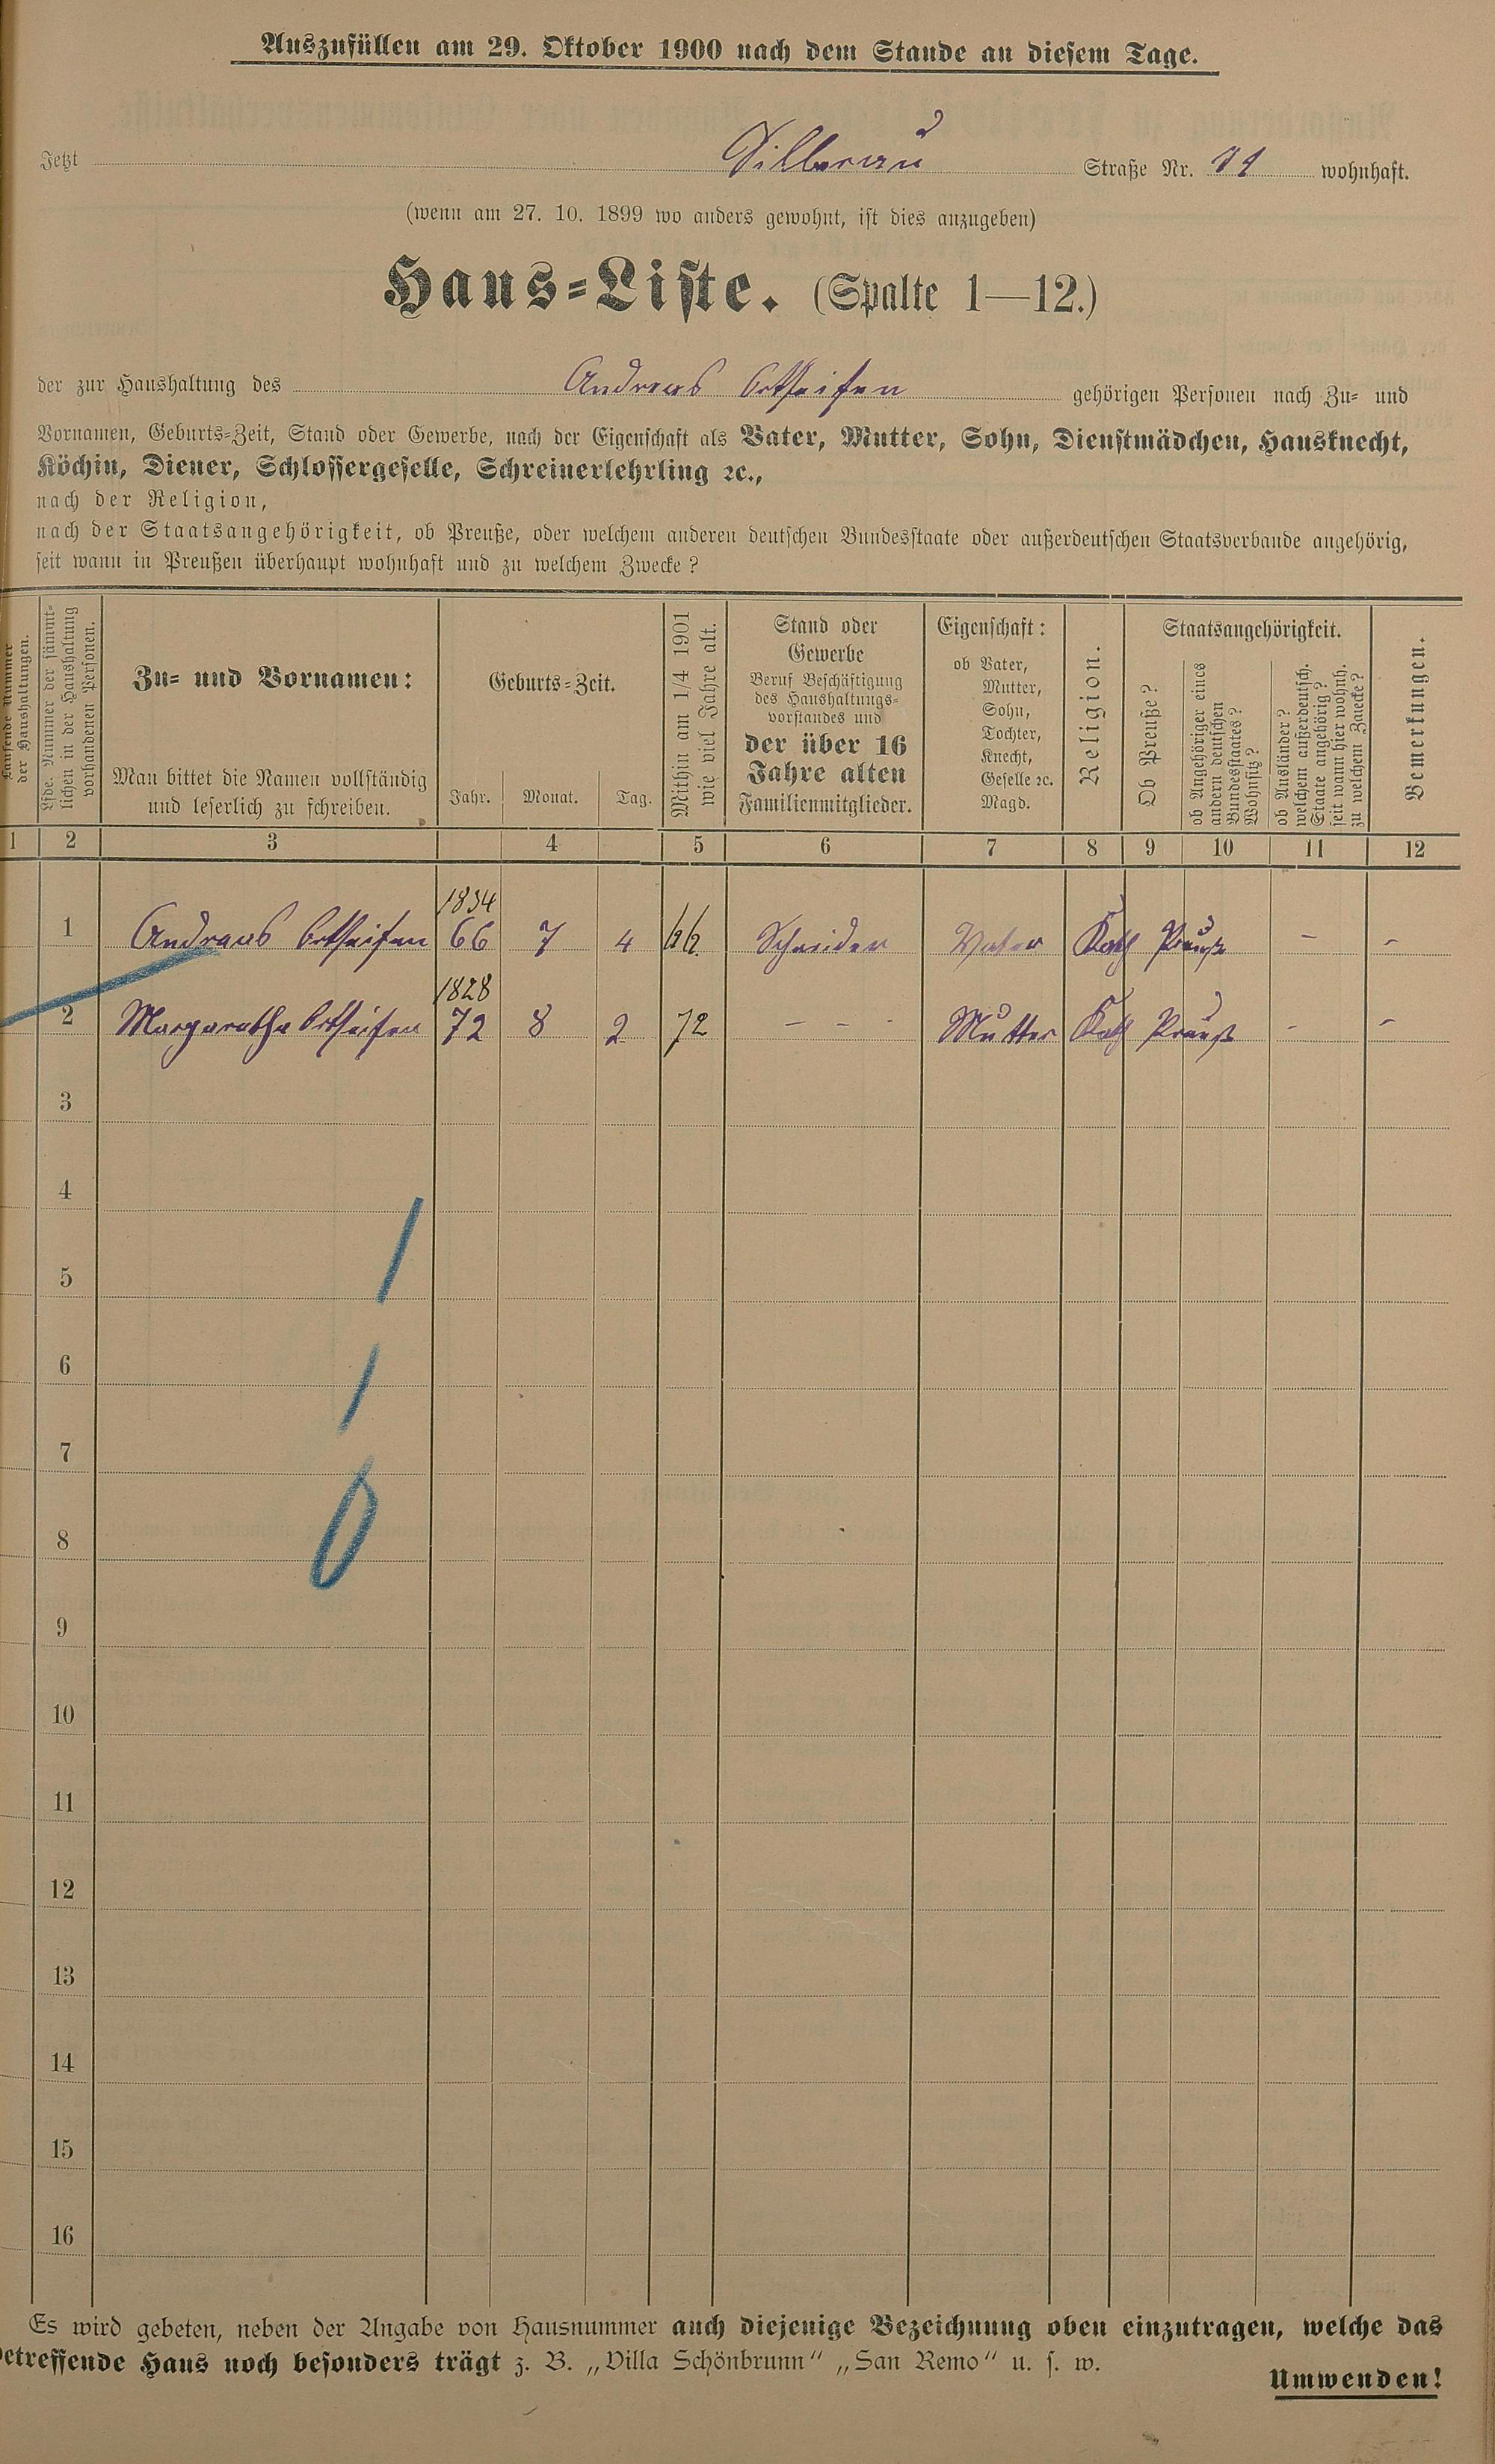 Auszufüllen am 29. Oktober 1900 nach dem Stande an diesem Tage.
Jetzt Silberau Straße Nr. 31 wohnhaft.
(wenn am 27. 10. 1899 wo anders gewohnt, ist dies anzugeben)
Haus=Liste. (Spalte 1—12.)
der zur Haushaltung des Andreas Ortseifen gehörigen Personen nach Zu= und
Vornamen, Geburts=Zeit, Stand oder Gewerbe, nach der Eigenschaft als Vater, Mutter, Sohn, Dienstmädchen, Hausknecht,
Köchin, Diener, Schlossergeselle, Schreinerlehrling ꝛc.,
nach der Religion,
nach der Staatsangehörigkeit, ob Preuße, oder welchem anderen deutschen Bundesstaate oder außerdeutschen Staatsverbande angehörig,
seit wann in Preußen überhaupt wohnhaft und zu welchem Zwecke?
Laufende Nummer
der Haushaltungen.
Lfde. Nummer der sämmt=
lichen in der Haushaltung
vorhandenen Personen.
Zu= und Vornamen:
Man bittet die Namen vollständig
und leserlich zu schreiben.
Geburts=Zeit.
Jahr. Monat. Tag.
Mithin am 1/4 1901
wie viel Jahre alt.
Stand oder
Gewerbe
Beruf Beschäftigung
des Haushaltungs=
vorstandes und
der über 16
Jahre alten
Familienmitglieder.
Eigenschaft:
ob Vater,
Mutter,
Sohn,
Tochter,
Knecht,
Geselle ꝛc.
Magd.
Religion.
Staatsangehörigkeit.
Ob Preuße?
ob Angehöriger eines
andern deutschen
Bundesstaates?
Wohnsitz?
ob Ausländer?
welchem außerdeutsch.
Staate angehörig?
seit wann hier wohnh.
zu welchem Zwecke?
Bemerkungen.
1 2 3 4 5 6 7 8 9 10 11 12
1834
1 Andreas Ortseifen 66 7 4 66 Schneider Vater Kath Preuße – –
1828
2 Margaretha Ortseifen 72 8 2 72 – – - Mutter Kath Preuße - –
3
4
5
6
7
8
9
10
11
12
13
14
15
16
Es wird gebeten, neben der Angabe von Hausnummer auch diejenige Bezeichnung oben einzutragen, welche das
betreffende Haus noch besonders trägt z. B. „Villa Schönbrunn" „San Remo" u. s. w.
Umwenden!